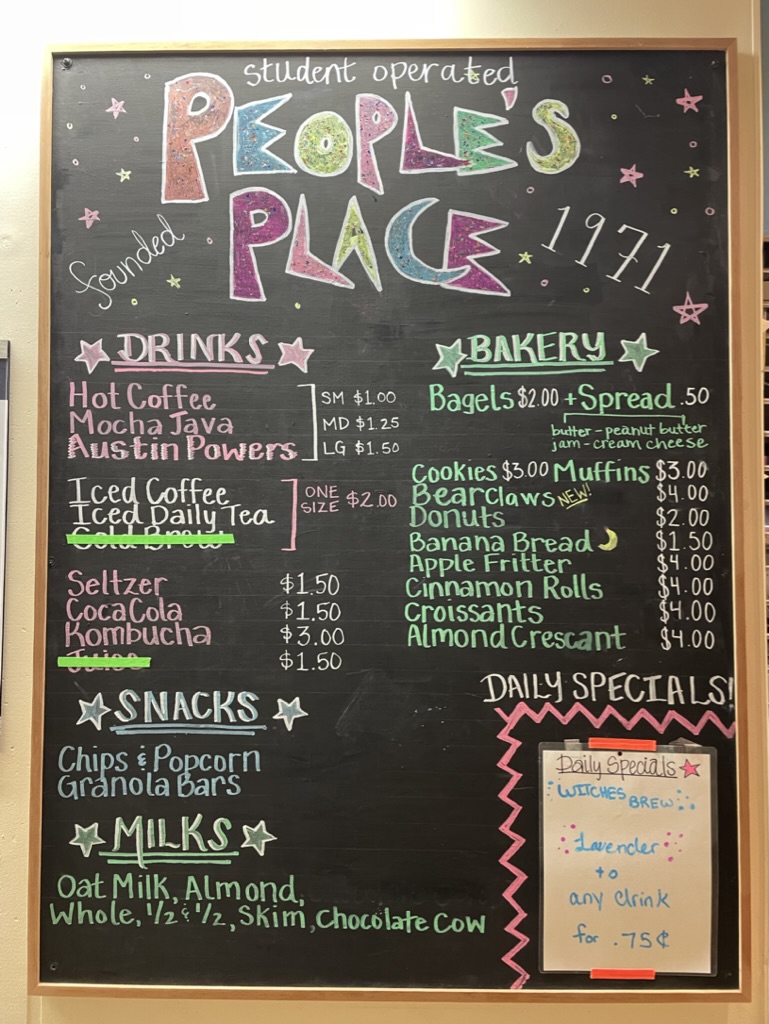 student operated
PEOPLE'S
PLACE
founded 1971
DRINKS
Hot Coffee
Mocha Java
Austin Powers
SM $1.00
MD $1.25
LG $1.50
Iced Coffee
Iced Daily Tea
Cold Brew
ONE SIZE $2.00
Seltzer $1.50
CocaCola $1.50
Kombucha $3.00
Juice $1.50
SNACKS
Chips & Popcorn
Granola Bars
MILKS
Oat Milk, Almond,
Whole, 1/2 & 1/2, Skim, Chocolate Cow
BAKERY
Bagels $2.00 + Spread .50
butter - peanut butter
jam - cream cheese
Cookies $3.00 Muffins $3.00
Bearclaws NEW! $4.00
Donuts $2.00
Banana Bread $1.50
Apple Fritter $4.00
Cinnamon Rolls $4.00
Croissants $4.00
Almond Crescant $4.00
DAILY SPECIALS!
Daily Specials
WITCHES BREW
Lavender
to
any drink
for .75¢